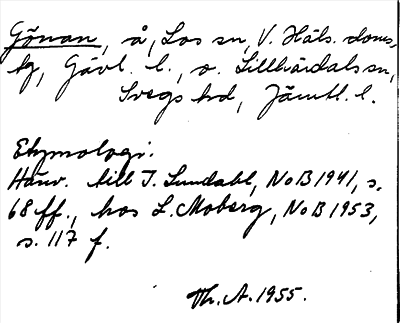 Gönan, å, Los sn, V. Häls. doms.
tg, Gävl. l., o. Lillhärdals sn,
Svegs hd, Jämtl. l.
Etymologi.
Hänv. till I. Lundahl, NoB 1941, s.
68 ff., hos L. Moberg, NoB 1953,
s. 117 f.
Th. A. 1955.